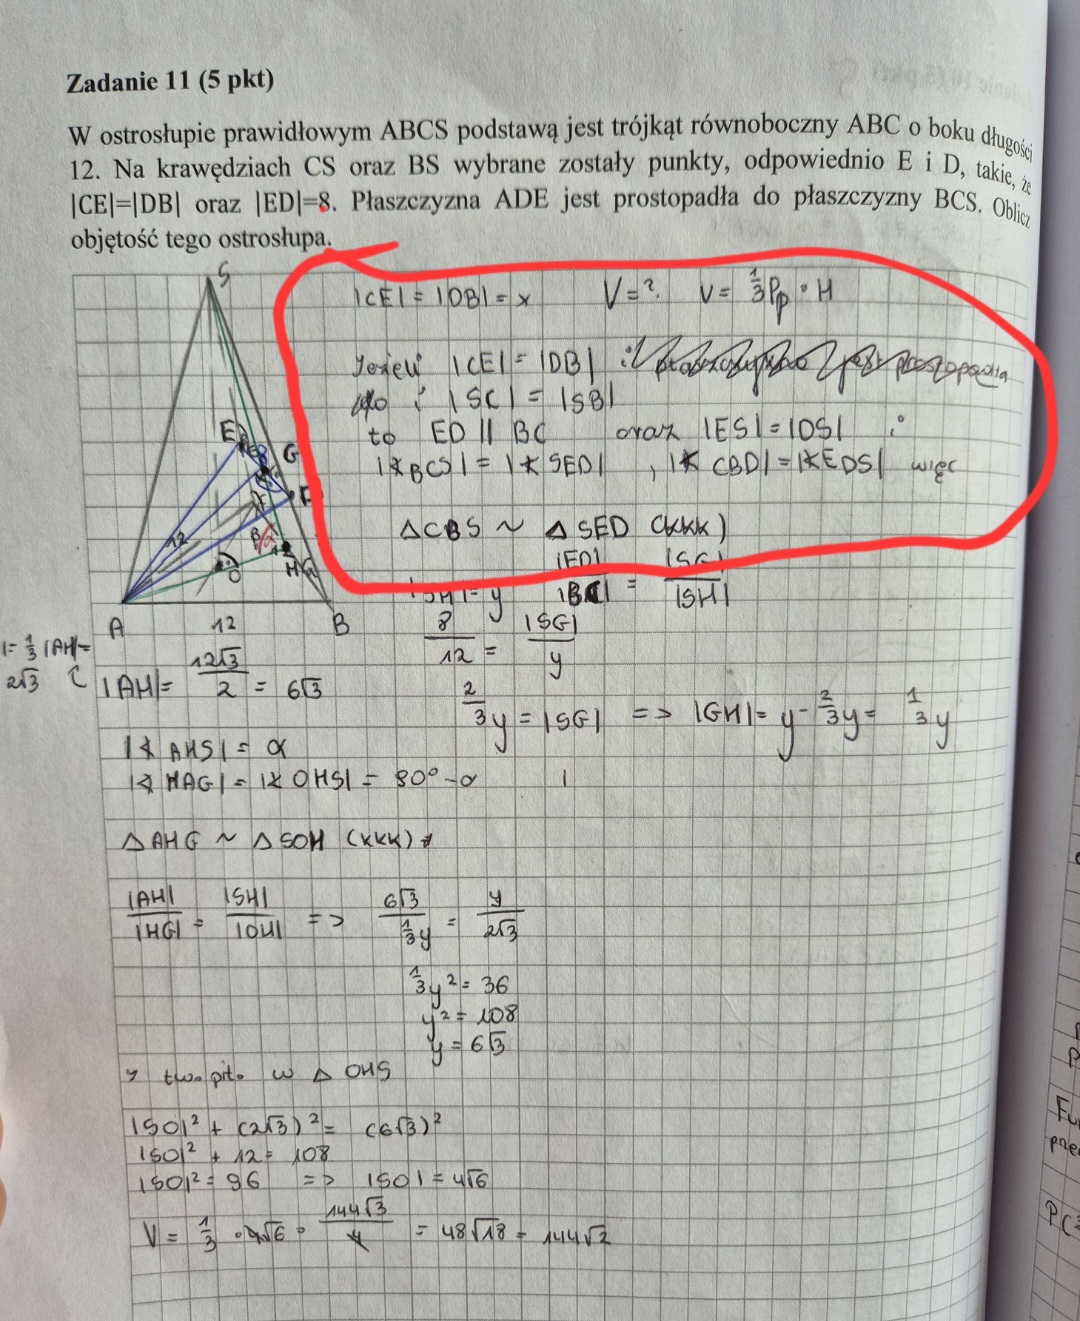 Zadanie 11 (5 pkt)
W ostrosłupie prawidłowym ABCS podstawą jest trójkąt równoboczny ABC o boku długości
12. Na krawędziach CS oraz BS wybrane zostały punkty, odpowiednio E i D, takie, że
|CE|=|DB| oraz |ED|=8. Płaszczyzna ADE jest prostopadła do płaszczyzny BCS. Oblicz
objętość tego ostrosłupa.
S
|CE| = |DB| = x V = ? V = 1/3 Pp · H
Jeżeli |CE| = |DB|
i |SC| = |SB|
to ED || BC oraz |ES| = |DS| i
|∢BCS| = |∢SED|, |∢CBD| = |∢EDS| więc
△CBS ~ △SED (kkk)
E
G
12
O
H
A
12
B
|SH| = y |ED|/|BC| = |SG|/|SH|
8/12 = |SG|/y
= 1/3 |AH| =
2√3
|AH| = 12√3/2 = 6√3
2/3 y = |SG| => |GH| = y - 2/3 y = 1/3 y
|∢AHS| = α
|∢HAG| = |∢OHS| = 90° - α
△AHG ~ △SOH (kkk)
|AH|/|HG| = |SH|/|OH| => 6√3/(1/3 y) = y/(2√3)
1/3 y² = 36
y² = 108
y = 6√3
z tw. pit. w △ OHS
|SO|² + (2√3)² = (6√3)²
|SO|² + 12 = 108
|SO|² = 96 => |SO| = 4√6
V = 1/3 · 4√6 · 144√3/4 = 48√18 = 144√2